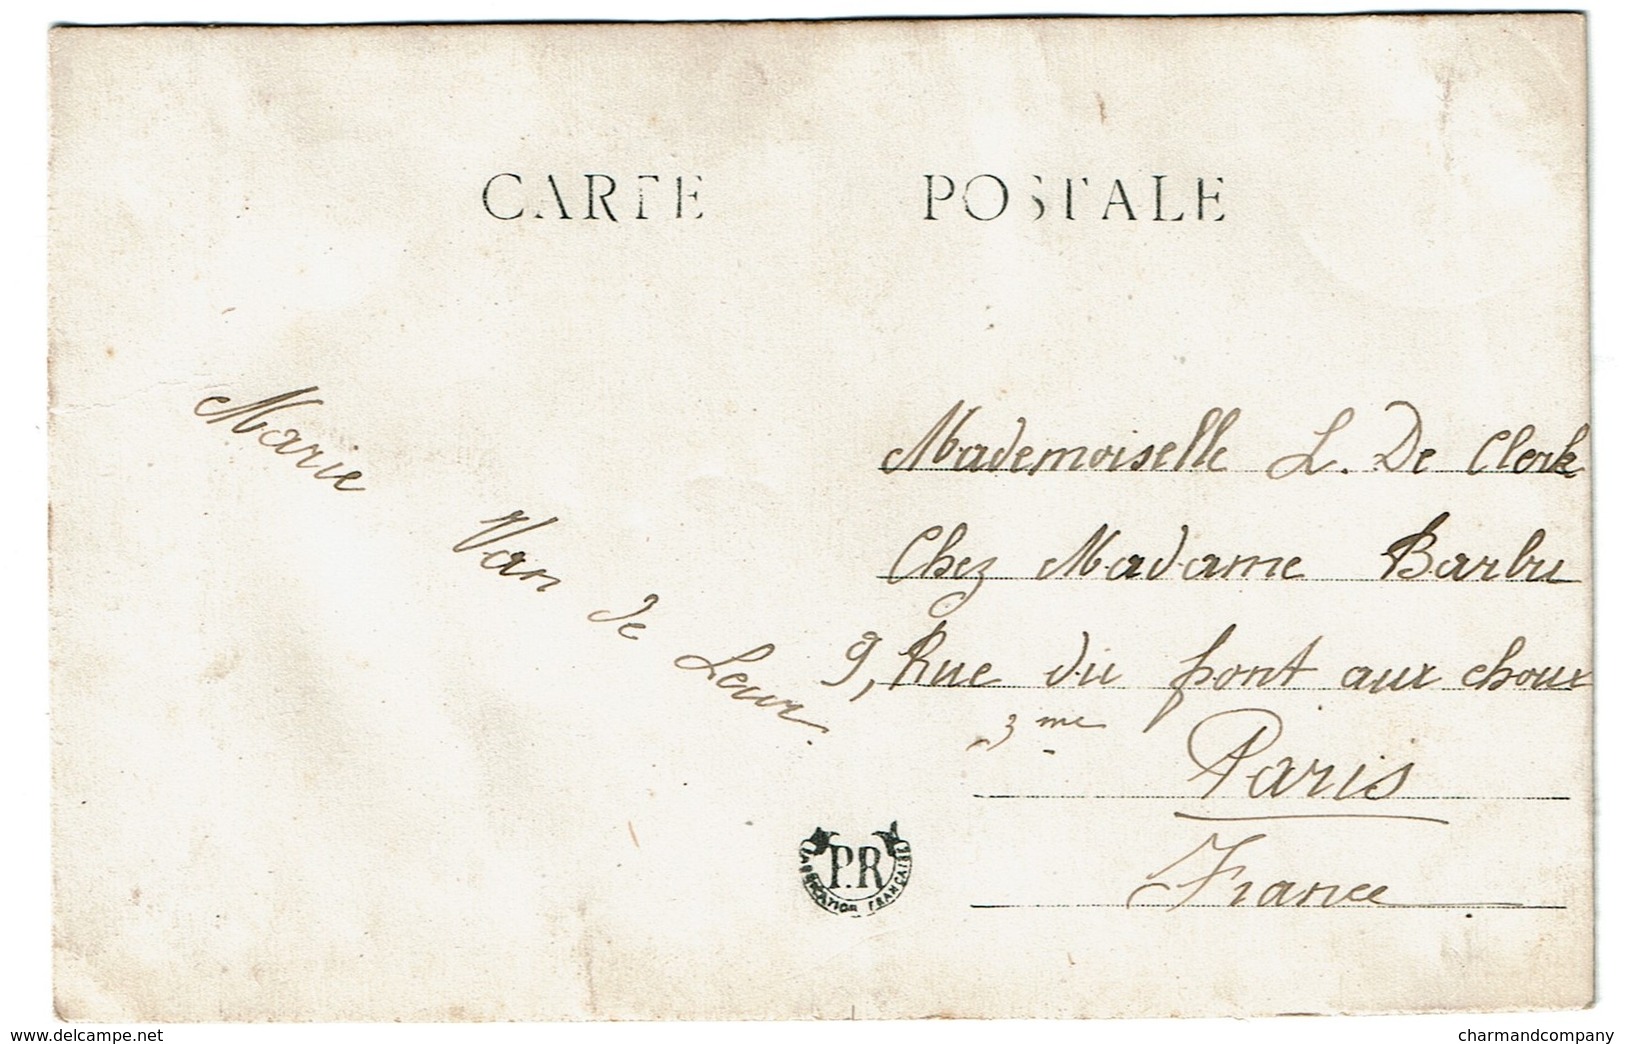 CARTE POSTALE
Marie Van de Leur
Mademoiselle L. De Clerk
Chez Madame Barbu
9, Rue du pont aux choux
3me
Paris
France
P.R
FABRICATION FRANÇAISE
delcampe.net
charmandcompany